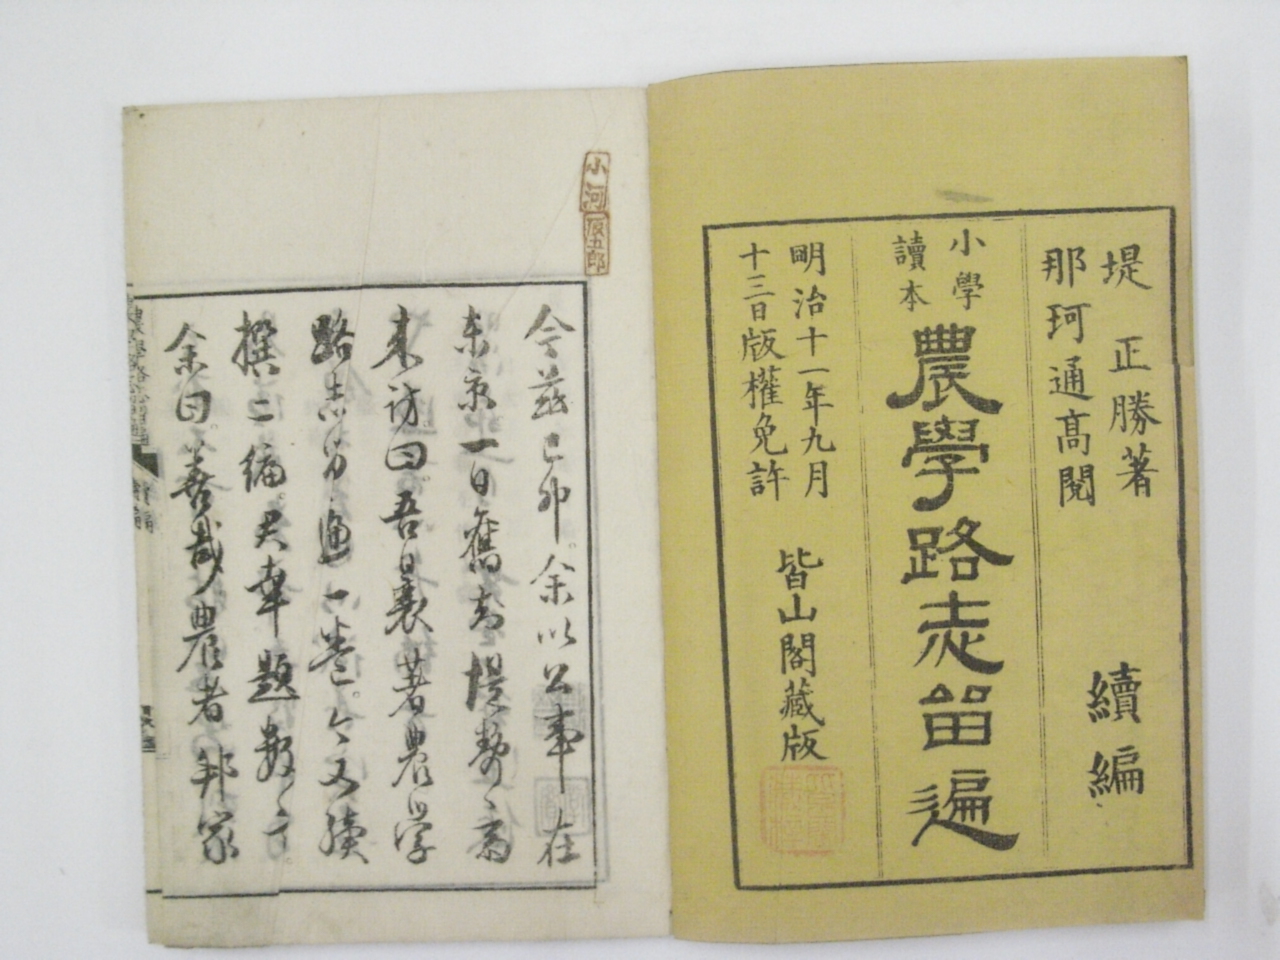 堤正勝著
那珂通高閲
續編
小學
讀本
農學路志畄遍
明治十一年九月
十三日版權免許
皆山閣藏版
小河
五郎
今茲己卯。余以公事在
東京一日舊知堤静斎
来訪曰吾曩著農学
路志留遍一巻。今又續
撰二編。君幸題数言。
余曰。善哉農者邦家